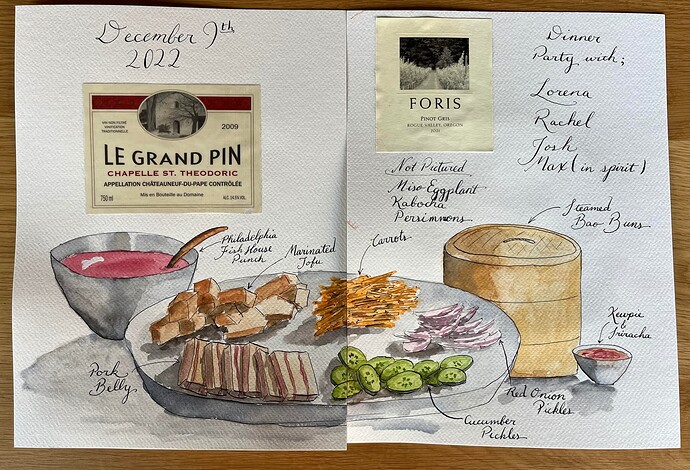 December 9th
2022
UN VIN NON FILTRÉ
VINIFICATION
TRADITIONNELLE
2009
LE GRAND PIN
CHAPELLE ST. THEODORIC
APPELLATION CHÂTEAUNEUF-DU-PAPE CONTRÔLÉE
Mis en Bouteille au Domaine
750 ml
ALC. 14.5% VOL.
FORIS
PINOT GRIS
ROGUE VALLEY, OREGON
2020
Dinner
Party with;
Lorena
Rachel
Josh
Max (in spirit)
Not Pictured
Miso Eggplant
Kabocha
Persimmons
Steamed
Bao Buns
Philadelphia
Fish House
Punch
Marinated
Tofu
Carrots
Kewpie
&
Sriracha
Pork
Belly
Red Onion
Pickles
Cucumber
Pickles